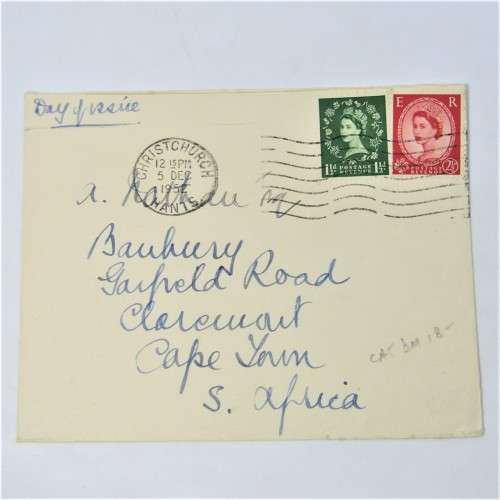 Day of issue
CHRISTCHURCH
12 15 PM
5 DEC
1952
HANTS.
1½D POSTAGE REVENUE 1½D
E R
POSTAGE REVENUE 2½D
A.
Banbury
Garfield Road
Claremont
Cape Town
S. Africa